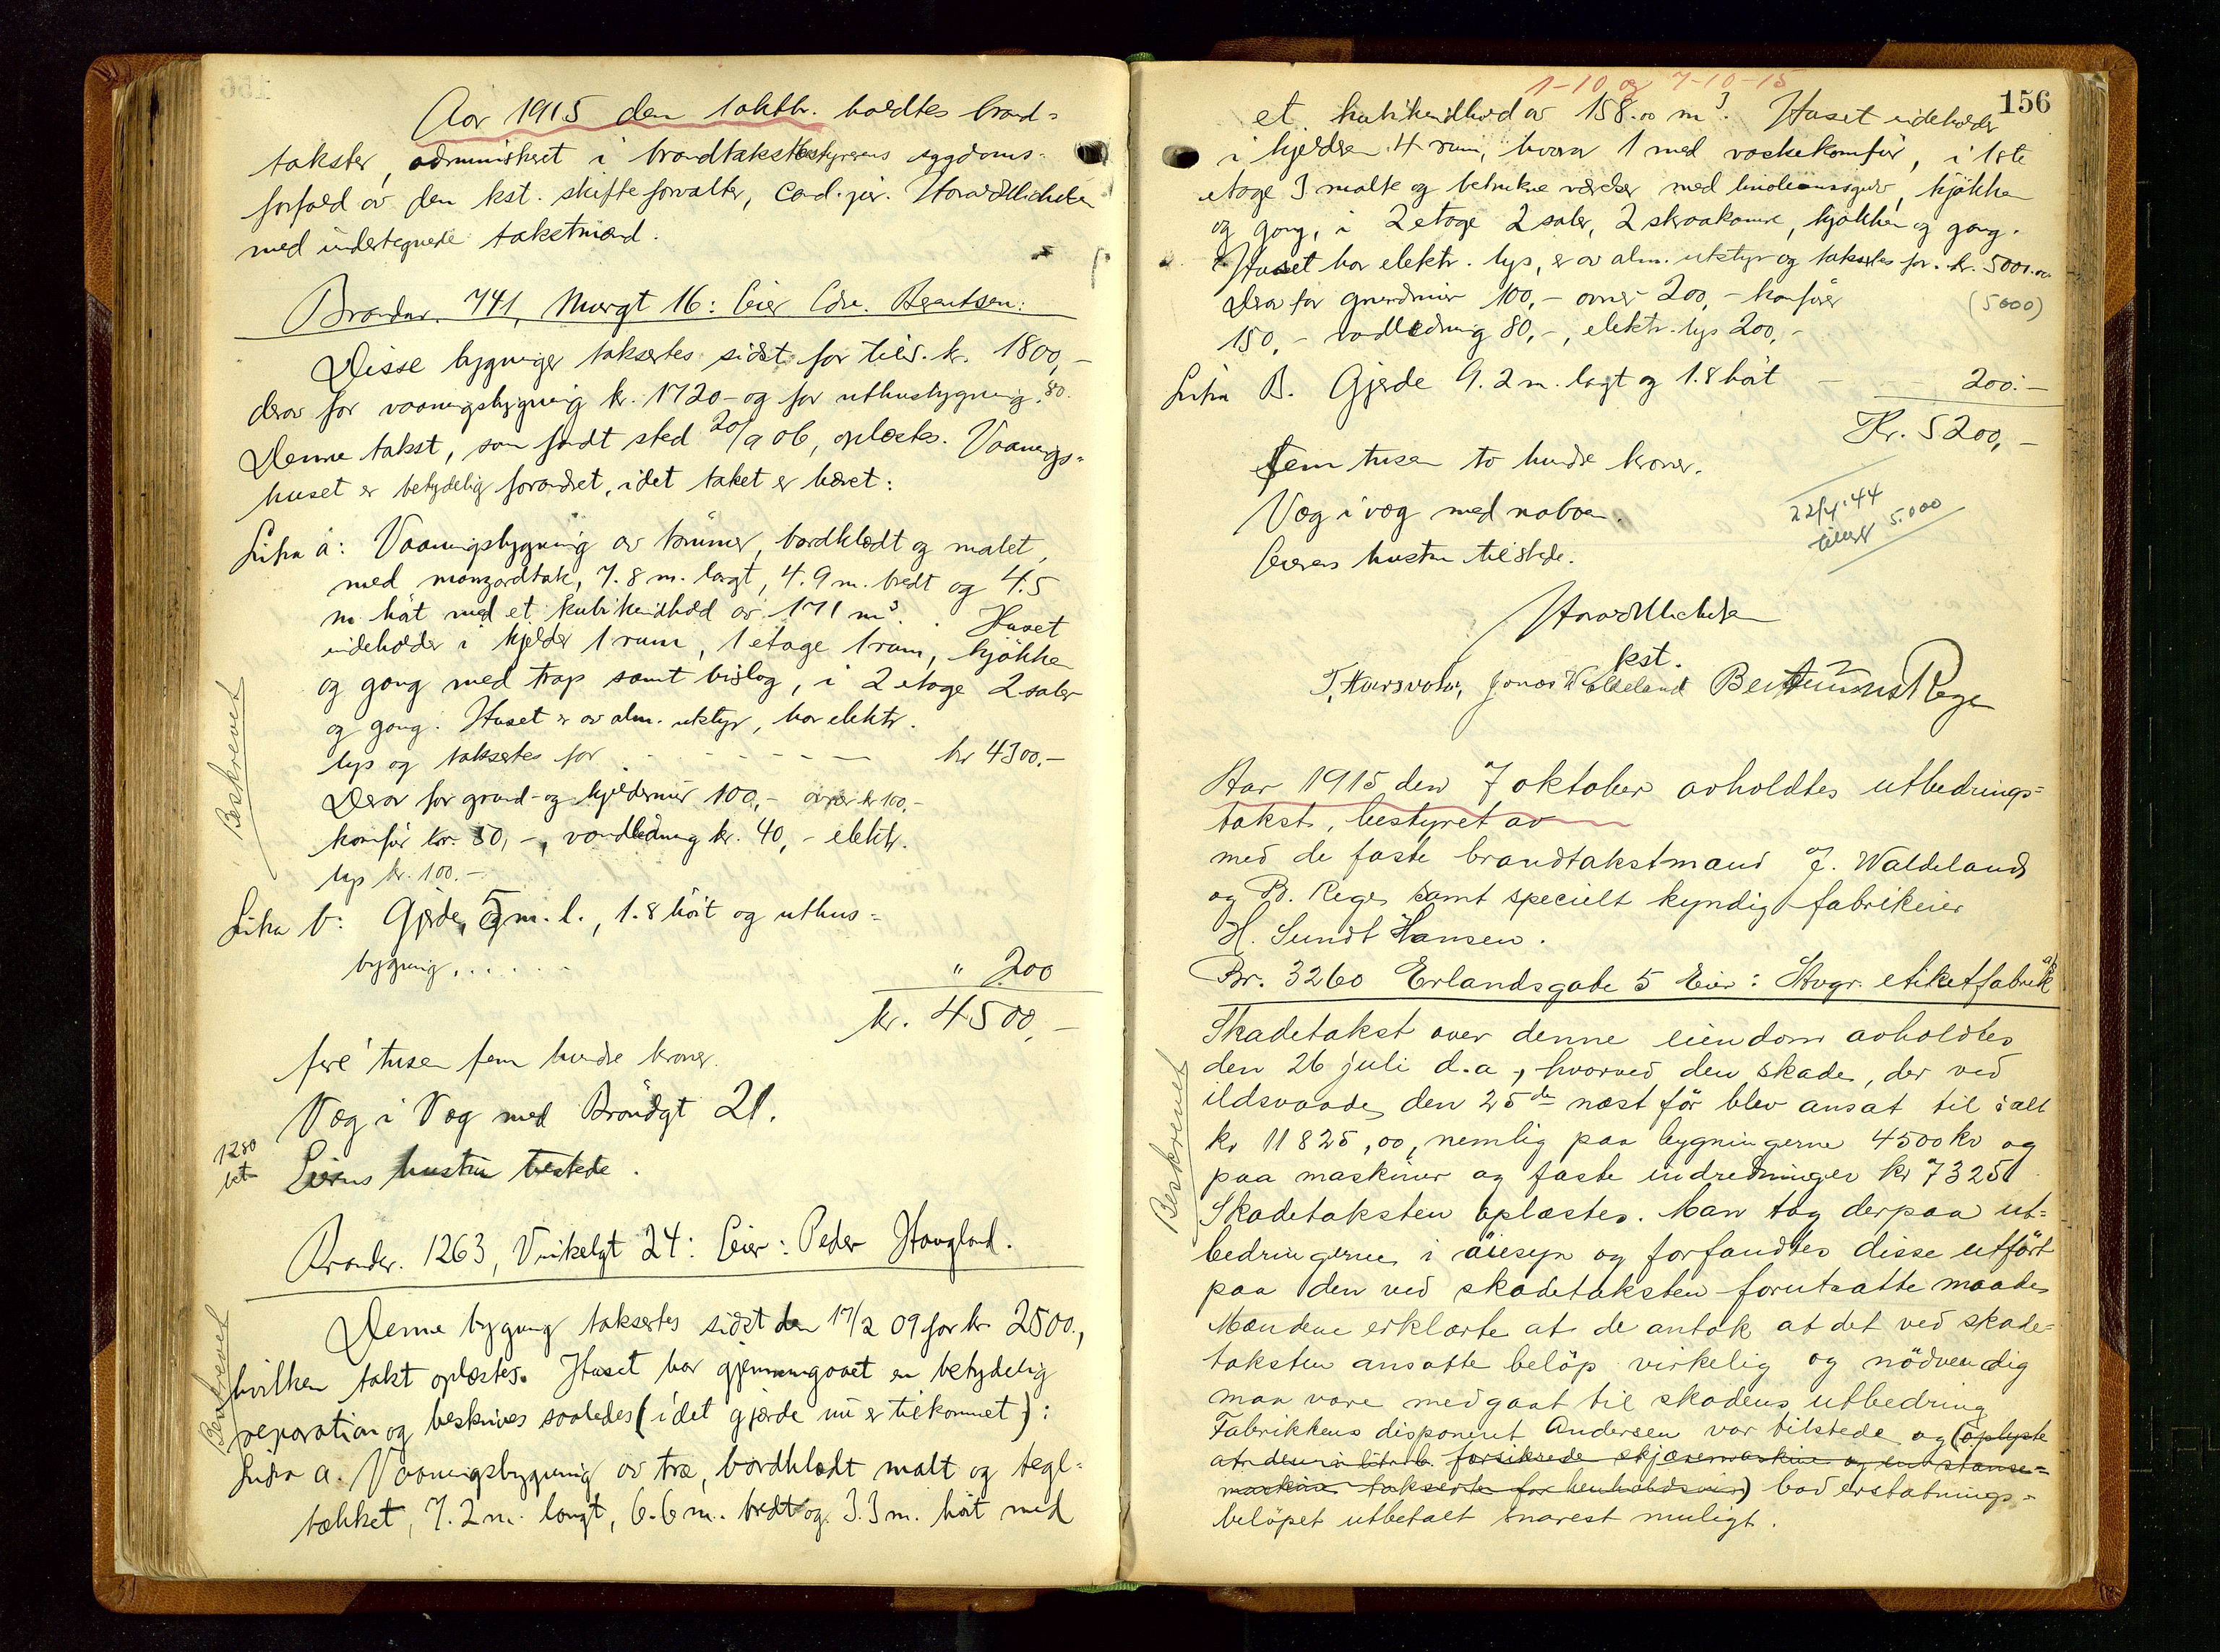 Aar 1915 den 1 oktbr. holdtes brand-
takster, administreret i brandtakstbestyrerens sygdoms-
forfald av den kst. skifteforvalter, cand. jur.
med undertegnede takstmænd.
Brandnr. 741, Murgt 16: Eier Edv. Berentsen:
Disse bygninger taksertes sidst for tils. kr. 1800,-
derav for vaaningsbygning kr. 1720- og for uthusbygning 80.
Denne takst, som fandt sted 20/9 06, oplæstes. Vaanings-
huset er betydelig forandret, idet taket er hævet:
Litra a: Vaaningsbygning av tømmer, bordklædt og malet,
med mansardtak, 7.8 m. langt, 4.9 m. bredt og 4.5
m. høit med et kubikindhold av 171 m³. Huset
indeholder i kjelder 1 rum, 1 etage 1 rum, kjøkken
og gang med trap samt bislag, i 2 etage 2 saler
og gang. Huset er av alm. utstyr, har elektr.
lys og taksertes for - - - - - - kr 4300.-
Derav for grund- og kjeldermur 100,- ovner kr 100,-
komfür kr. 50,-, vandledning kr. 40,- elektr.
lys kr. 100.-
Litra b: Gjerde, 5 m. l., 1.8 høit og uthus-
bygning, . . . . . " 200
kr. 4500,-
fire tusen fem hundre kroner.
Væg i Væg med Brøndgt 21.
Eierens hustru tilstede.
1280
Beskrevet
Brandnr. 1263, Vinkelgt 24: Eier: Peder Haugland.
Denne bygning taksertes sidst den 17/2 09 for kr. 2500.,
hvilken takst oplæstes. Huset har gjennemgaaet en betydelig
reparation og beskrives saaledes (idet gjerde nu er tilkommet):
Litra a. Vaaningsbygning av træ, bordklædt malt og tegl-
tækket, 7.2 m. langt, 6.6 m. bredt og 3.3 m. høit med
Beskrevet
1-10 og 7-10-15
156
et kubikindhold av 158.00 m³. Huset indeholder
i kjelderen 4 rum, hvorav 1 med vaskekomfür, i 1ste
etage 3 malte og betrukne værelser med linoleumsgulv, kjøkken
og gang, i 2 etage 2 saler, 2 skraakamre, kjøkken og gang.
Huset har elektr. lys, er av alm. utstyr og taksertes for kr. 5000.00
Derav for grundmur 100,- ovner 200,- komfürer (5000)
150,- vandledning 80,-, elektr. lys 200,-
Litra B. Gjerde 9.2 m. langt og 1.8 høit - 200.-
Kr. 5200,-
fem tusen to hundre kroner.
Væg i væg med naboen.
Eierens hustru tilstede.
22/4 '44
tillegg 5.000
kst.
Jonas Waldeland Berthinius Rege
Aar 1915 den 7 oktober avholdtes utbedrings-
takst, bestyret av
med de faste brandtakstmænd J. Waldeland
og B. Rege samt specielt kyndig fabrikeier
H. Sundt Hansen.
Br. 3260 Erlandsgade 5 Eier: Stvgr. etiketfabrik a/s
Skadetakst over denne eiendom avholdtes
den 26 juli d.a., hvorved den skade, der ved
ildsvaade den 25de næst før blev ansat til ialt
kr 11825,00, nemlig paa bygningerne 4500 kr og
paa maskiner og faste indredninger kr 7325
Skadetaksten oplæstes. Man tog derpaa ut-
bedringerne i øiesyn og forfandtes disse utført
paa den ved skadetaksten forutsatte maade
Mændene erklærte at de antok at det ved skade-
taksten ansatte beløp virkelig og nødvendig
maa være medgaat til skadens utbedring
Fabrikkens disponent Andersen var tilstede og (oplyste
at den i litra b. forsikrede skjæremaskine og en stanse-
maskine takserte for henholdsvis) bad erstatnings-
beløpet utbetalt snarest muligt.
Beskrevet